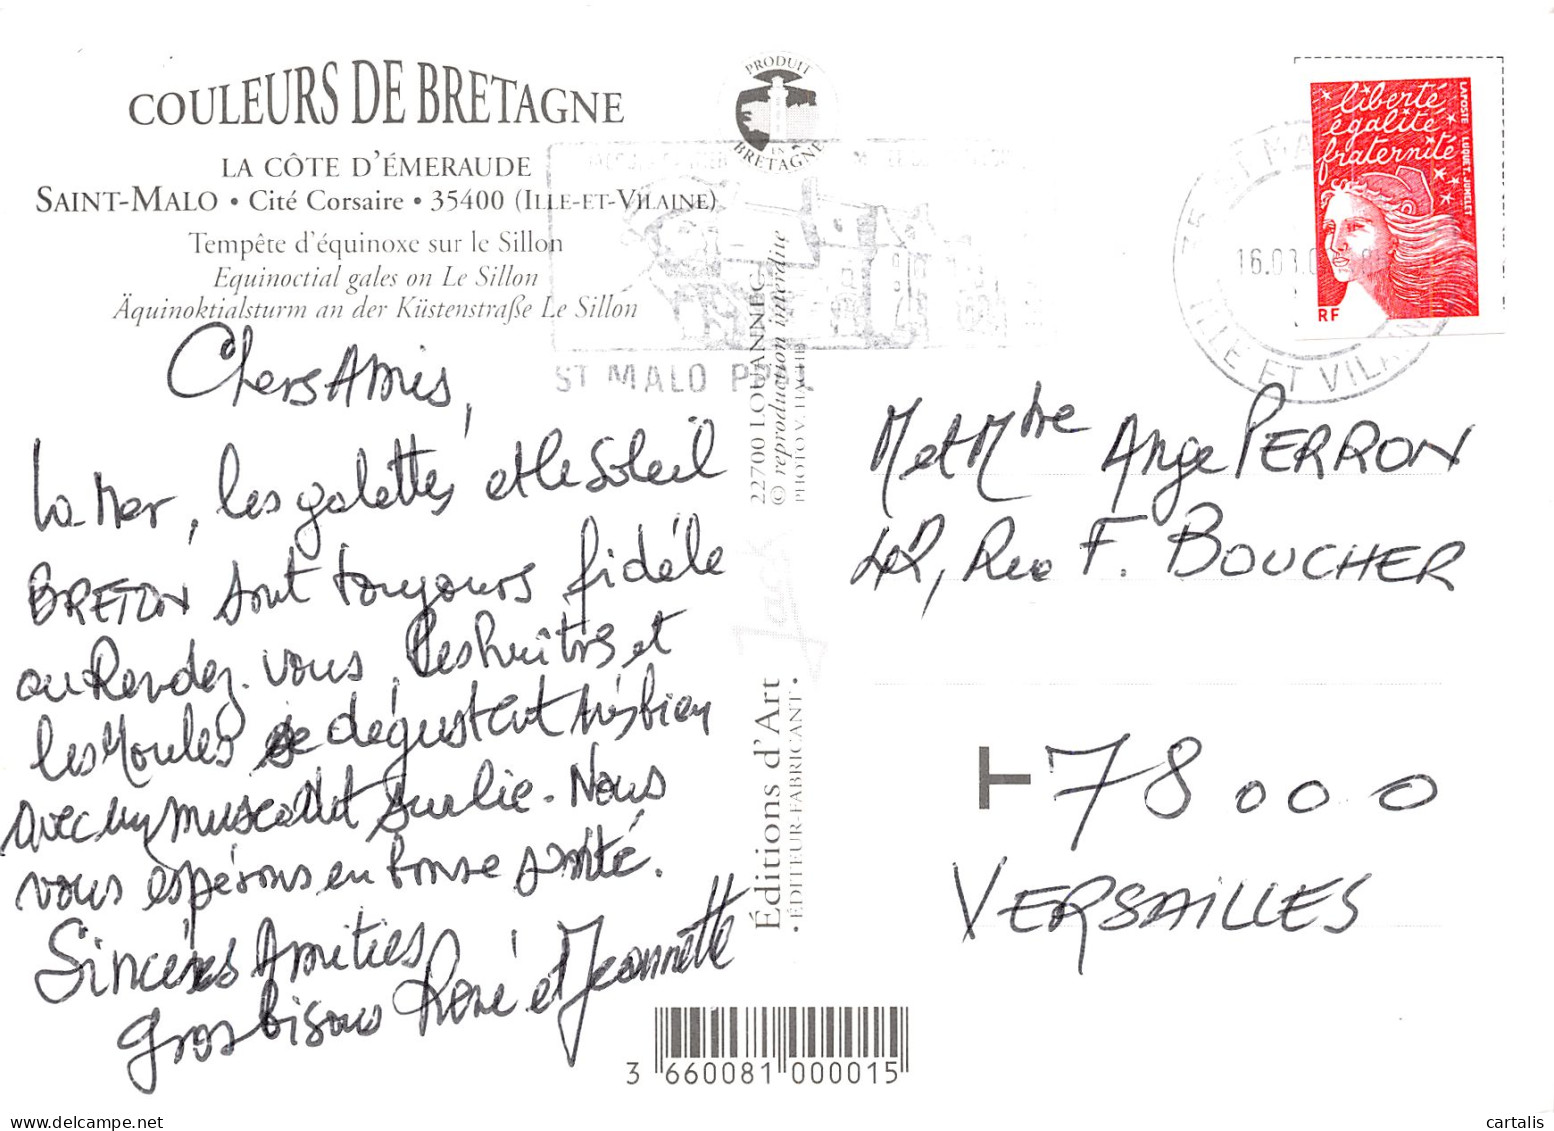 COULEURS DE BRETAGNE
LA CÔTE D'ÉMERAUDE
SAINT-MALO • Cité Corsaire • 35400 (ILLE-ET-VILAINE)
Tempête d'équinoxe sur le Sillon
Equinoctial gales on Le Sillon
Äquinoktialsturm an der Küstenstraße Le Sillon
PRODUIT
IN
BRETAGNE
ST MALO
Chers Amis,
La Mer, les galettes et le Soleil
BRETON sont toujours fidèle
au Rendez-vous, les huîtres et
les Moules se dégustent très bien
avec un muscadet sur lie. Nous
vous espérons en bonne santé.
Sincères Amitiés
Gros bisous René et Jeannette
22700 LOUANNEC
© reproduction interdite
PHOTO V. HACHE
Éditions d'Art
Jack
• ÉDITEUR-FABRICANT •
3 660081 000015
liberté
égalité
fraternité
LA POSTE LUQUET.JUMELET
RF
ILLE ET VILAINE
M et Mme Ange PERRON
42, Rue F. BOUCHER
T 78000
VERSAILLES
www.delcampe.net
cartalis